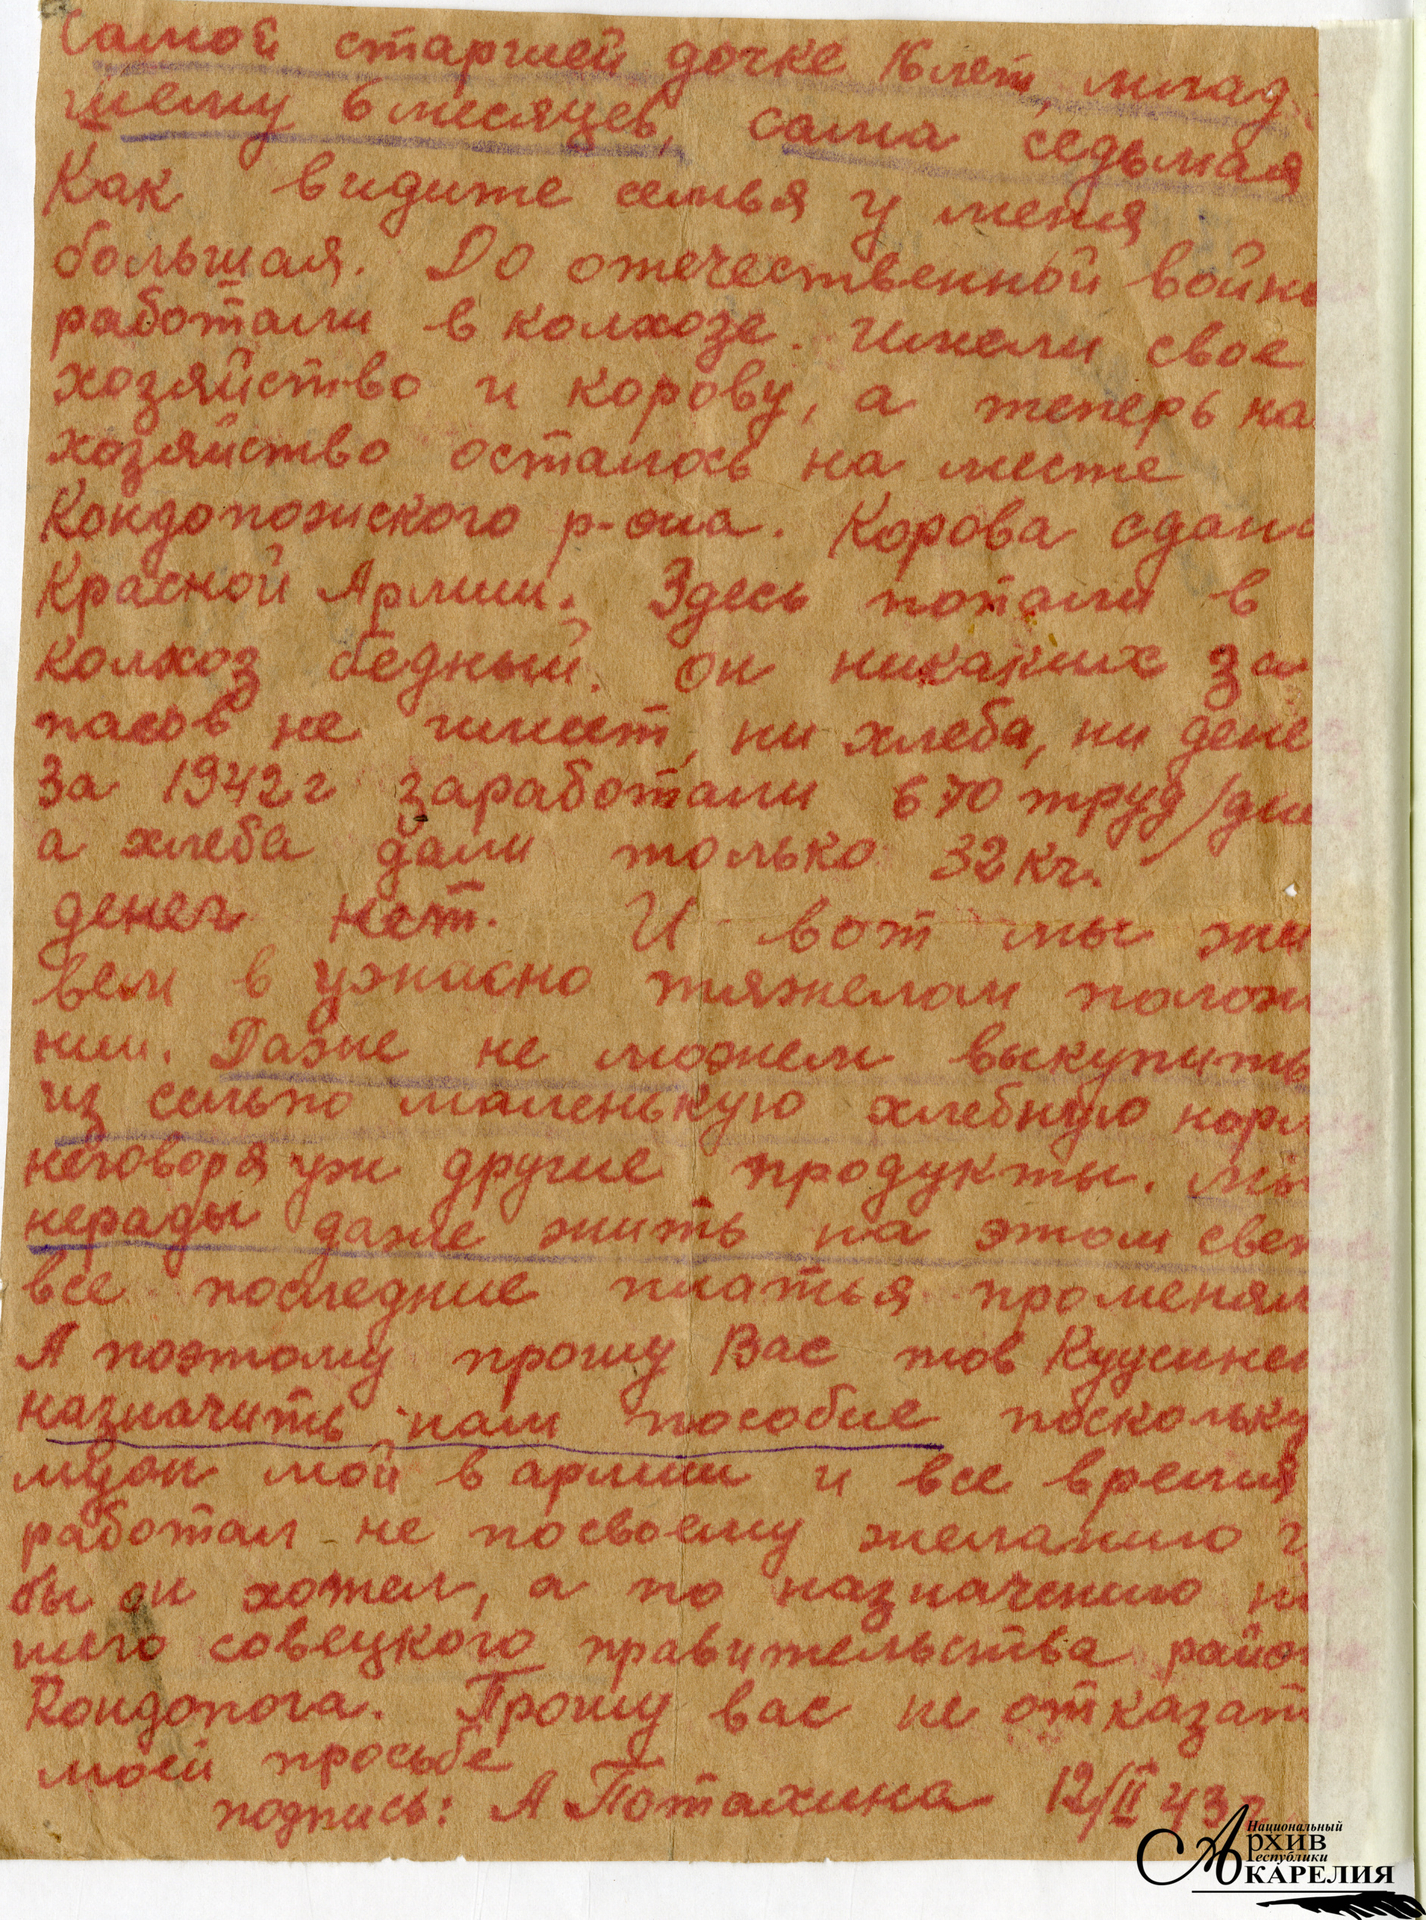 Самой старшей дочке 16 лет, млад
шему 6 месяцев, сама седьмая
Как видите семья у меня
большая. До отечественной войны
работали в колхозе. Имели свое
хозяйство и корову, а теперь на
хозяйство осталось на месте
Кондопожского р-она. Корова сдана
Красной Армии. Здесь попали в
колхоз бедный. он никаких за
пасов не имеет, ни хлеба, ни дене
За 1942 г заработали 670 труд/дне
а хлеба дали только 32 кг.
денег нет. И вот мы жи
вем в ужасно тяжелом полож
нии. Даже не можем выкупить
из сельпо маленькую хлебную норм
неговоря уж другие продукты. Мы
нерады даже жить на этом свет
все последние платья променял
А поэтому прошу Вас тов Куусинен
назначить нам пособие поскольку
муж мой в армии и все время
работал не посвоему желанию г
бы он хотел, а по назначению на
шего совецкого правительства район
Кондопога. Прошу вас не отказать
моей просьбе
подпись: А Потахина 12/II 43 г.
Национальный
Архив
Республики
Карелия